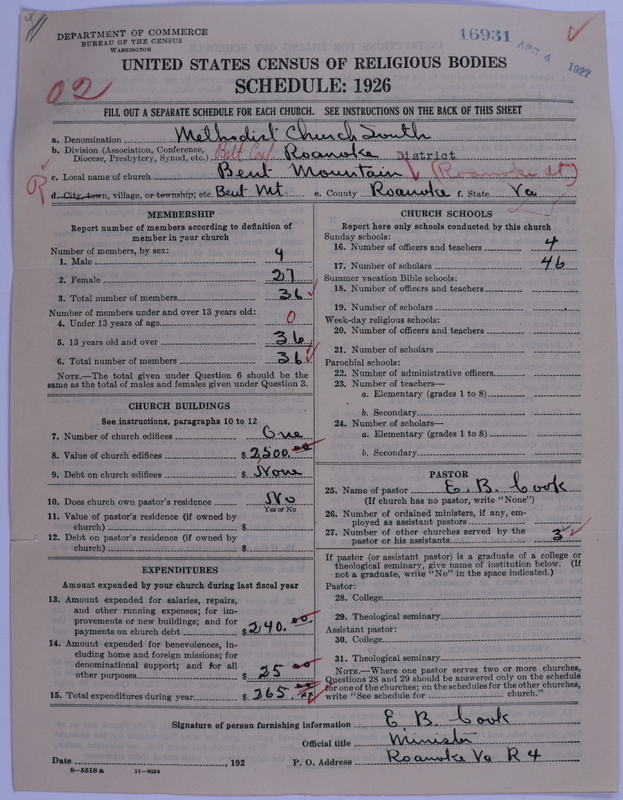 DEPARTMENT OF COMMERCE
BUREAU OF THE CENSUS
WASHINGTON
16931
APR 4 1927
UNITED STATES CENSUS OF RELIGIOUS BODIES
SCHEDULE: 1926
02
FILL OUT A SEPARATE SCHEDULE FOR EACH CHURCH. SEE INSTRUCTIONS ON THE BACK OF THIS SHEET
a. Denomination Methodist Church South
b. Division (Association, Conference, Diocese, Presbytery, Synod, etc.) Balt Conf Roanoke District
c. Local name of church Bent Mountain (Roanoke Ct)
R
d. City, town, village, or township, etc. Bent Mt. e. County Roanoke f. State Va
MEMBERSHIP
Report number of members according to definition of
member in your church
Number of members, by sex:
1. Male 9
2. Female 27
3. Total number of members 36
Number of members under and over 13 years old:
4. Under 13 years of age 0
5. 13 years old and over 36
6. Total number of members 36
NOTE.—The total given under Question 6 should be
same as the total of males and females given under Question 3.
CHURCH BUILDINGS
See instructions, paragraphs 10 to 12
7. Number of church edifices One
8. Value of church edifices $2,500.00
9. Debt on church edifices $ None
10. Does church own pastor's residence No
Yes or No
11. Value of pastor's residence (if owned by
church) $
12. Debt on pastor's residence (if owned by
church) $
EXPENDITURES
Amount expended by your church during last fiscal year
13. Amount expended for salaries, repairs,
and other running expenses; for im-
provements or new buildings; and for
payments on church debt $240.00
14. Amount expended for benevolences, in-
cluding home and foreign missions; for
denominational support; and for all
other purposes $25.00
15. Total expenditures during year $265.
CHURCH SCHOOLS
Report here only schools conducted by this church
Sunday schools:
16. Number of officers and teachers 4
17. Number of scholars 46
Summer vacation Bible schools:
18. Number of officers and teachers
19. Number of scholars
Week-day religious schools:
20. Number of officers and teachers
21. Number of scholars
Parochial schools:
22. Number of administrative officers
23. Number of teachers—
a. Elementary (grades 1 to 8)
b. Secondary
24. Number of scholars—
a. Elementary (grades 1 to 8)
b. Secondary
PASTOR
25. Name of pastor E. B. Cook
(If church has no pastor, write "None")
26. Number of ordained ministers, if any, em-
ployed as assistant pastors
27. Number of other churches served by the
pastor or his assistants 3
If pastor (or assistant pastor) is a graduate of a college or
theological seminary, give name of institution below. (If
not a graduate, write "No" in the space indicated.)
Pastor:
28. College
29. Theological seminary
Assistant pastor:
30. College
31. Theological seminary
NOTE.—Where one pastor serves two or more churches,
Questions 28 and 29 should be answered only on the schedule
for one of the churches; on the schedules for the other churches,
write "See schedule for church."
Signature of person furnishing information E. B. Cook
Official title Minister
Date , 192 P. O. Address Roanoke Va R 4
8—5518 a 11—9054